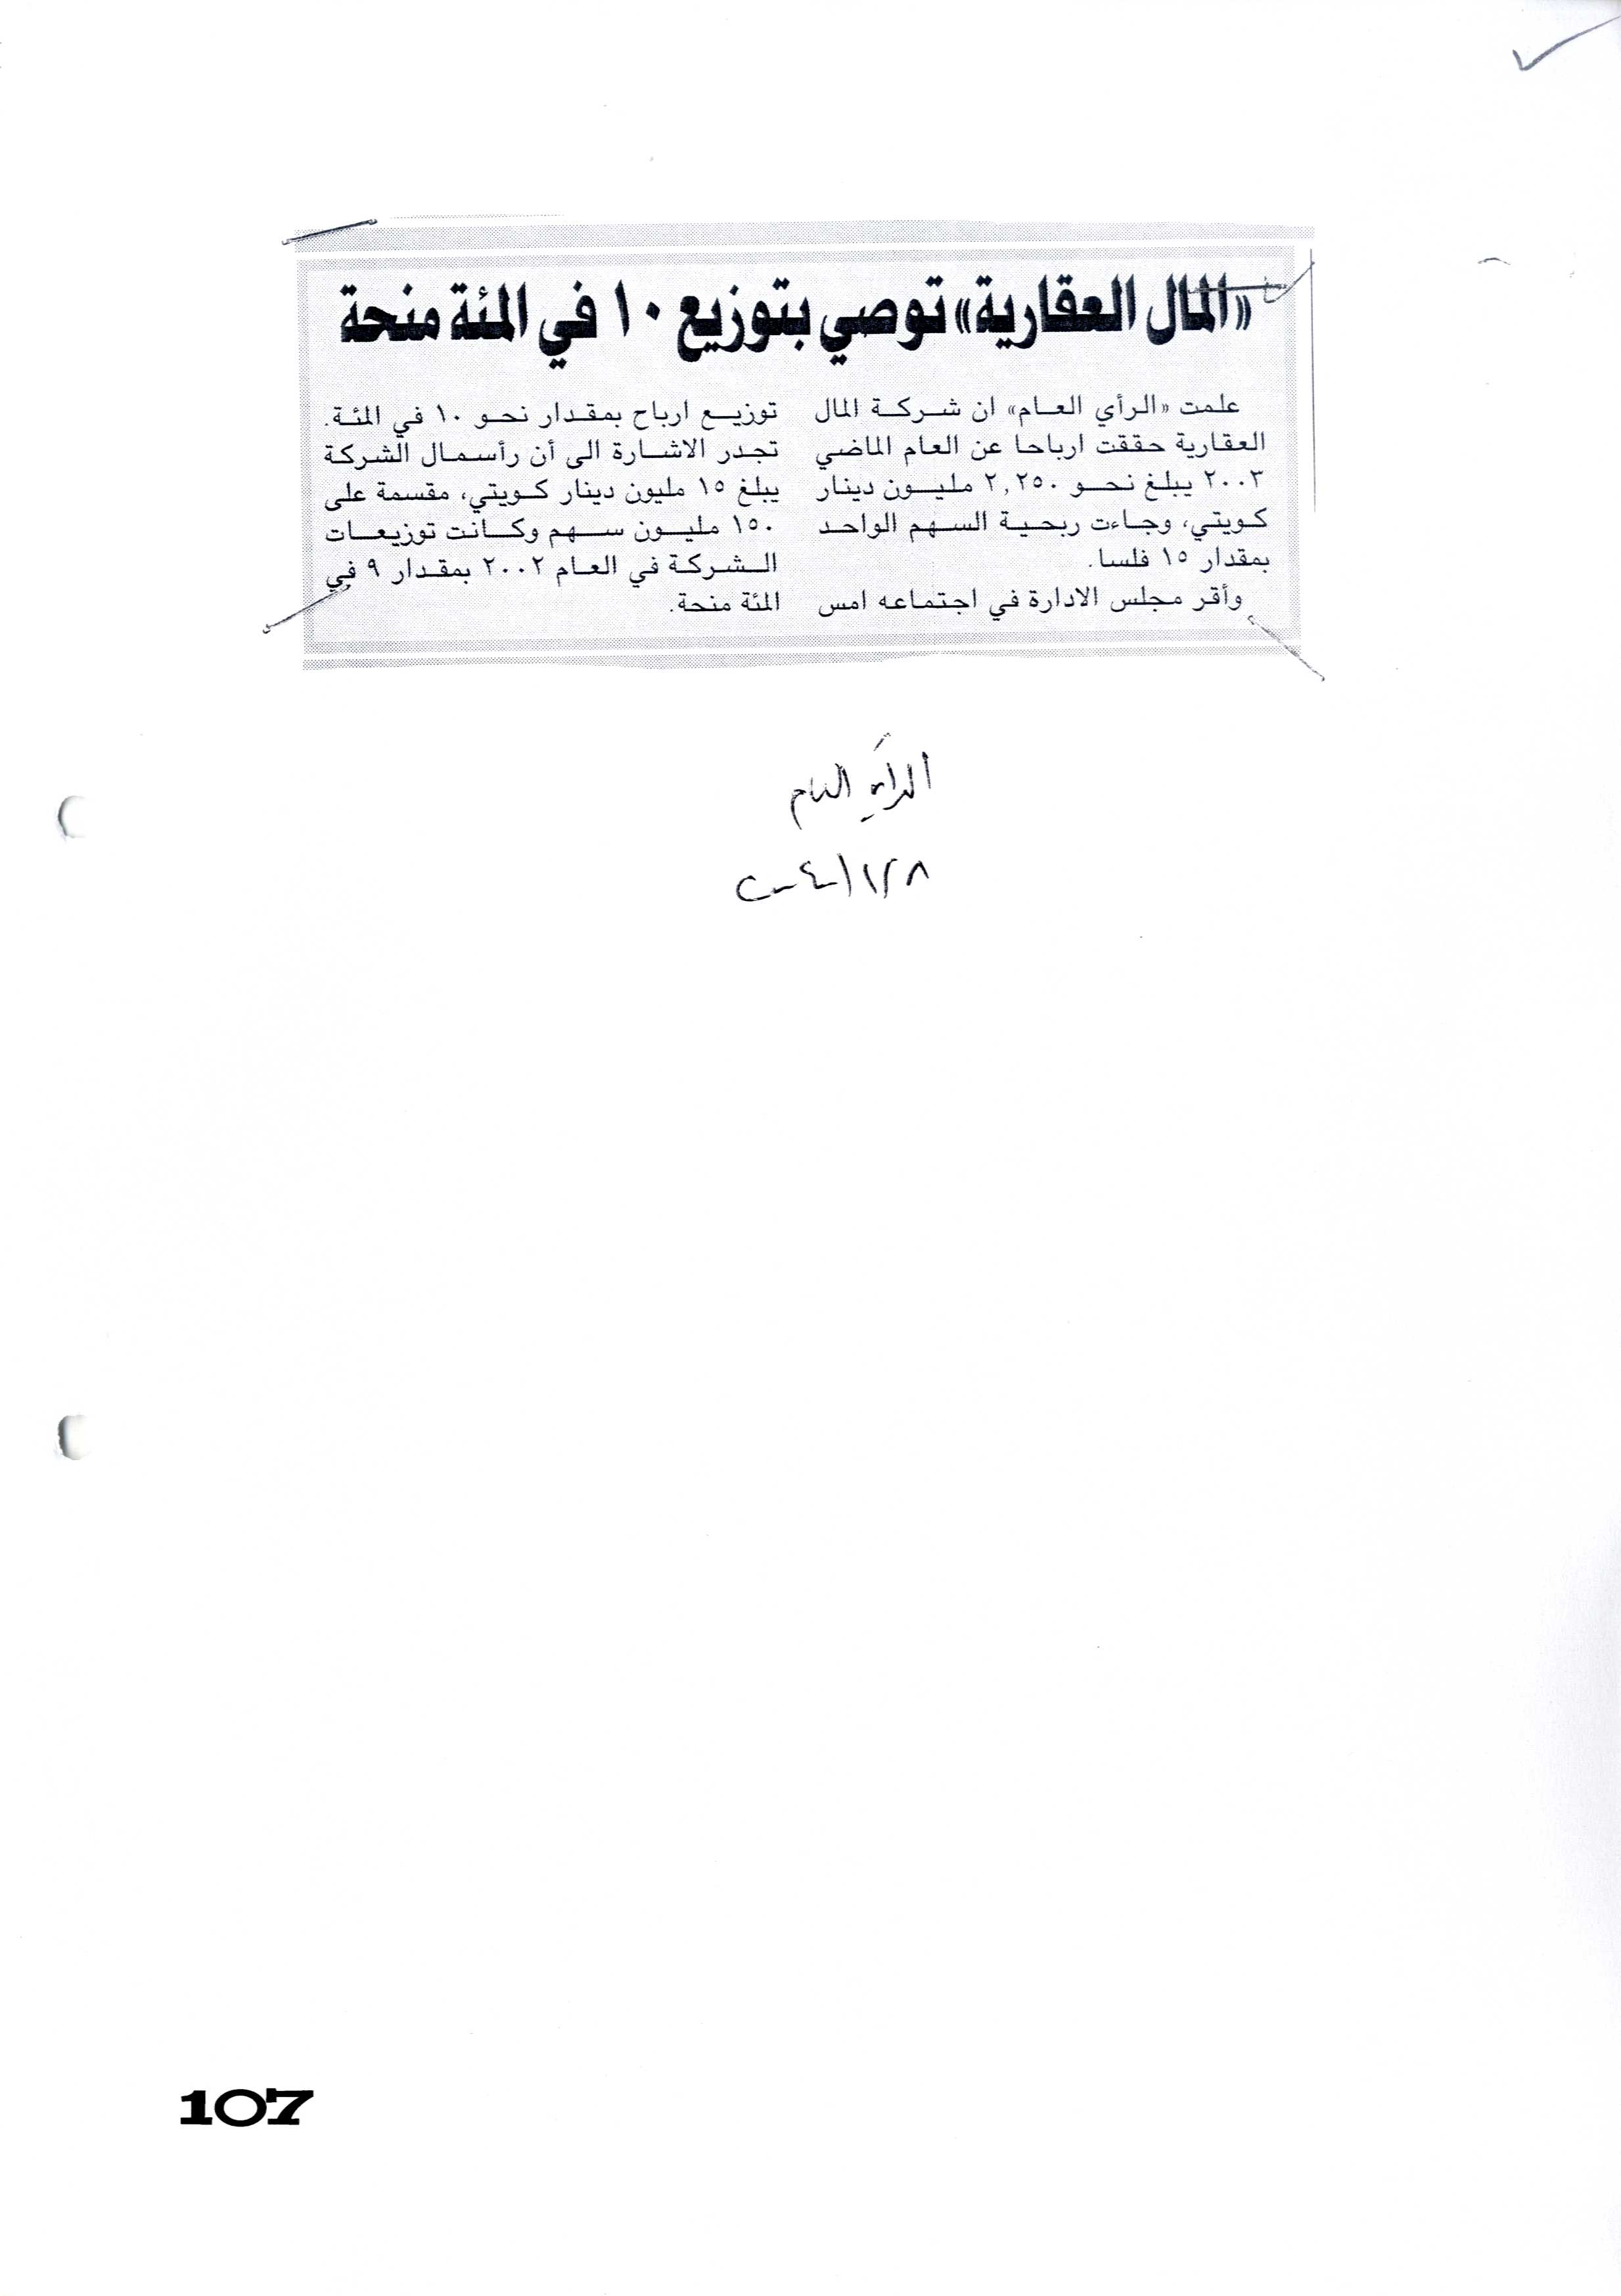 «المال العقارية» توصي بتوزيع ١٠ في المئة منحة
علمت «الرأي العام» ان شركة المال
العقارية حققت ارباحا عن العام الماضي
٢٠٠٣ يبلغ نحو ٢,٢٥٠ مليون دينار
كويتي، وجاءت ربحية السهم الواحد
بمقدار ١٥ فلسا.
وأقر مجلس الادارة في اجتماعه امس
توزيع ارباح بمقدار نحو ١٠ في المئة.
تجدر الاشارة الى أن رأسمال الشركة
يبلغ ١٥ مليون دينار كويتي، مقسمة على
١٥٠ مليون سهم وكانت توزيعات
الشركة في العام ٢٠٠٢ بمقدار ٩ في
المئة منحة.
الرأي العام
٢٠٠٤/١/٢٨
107